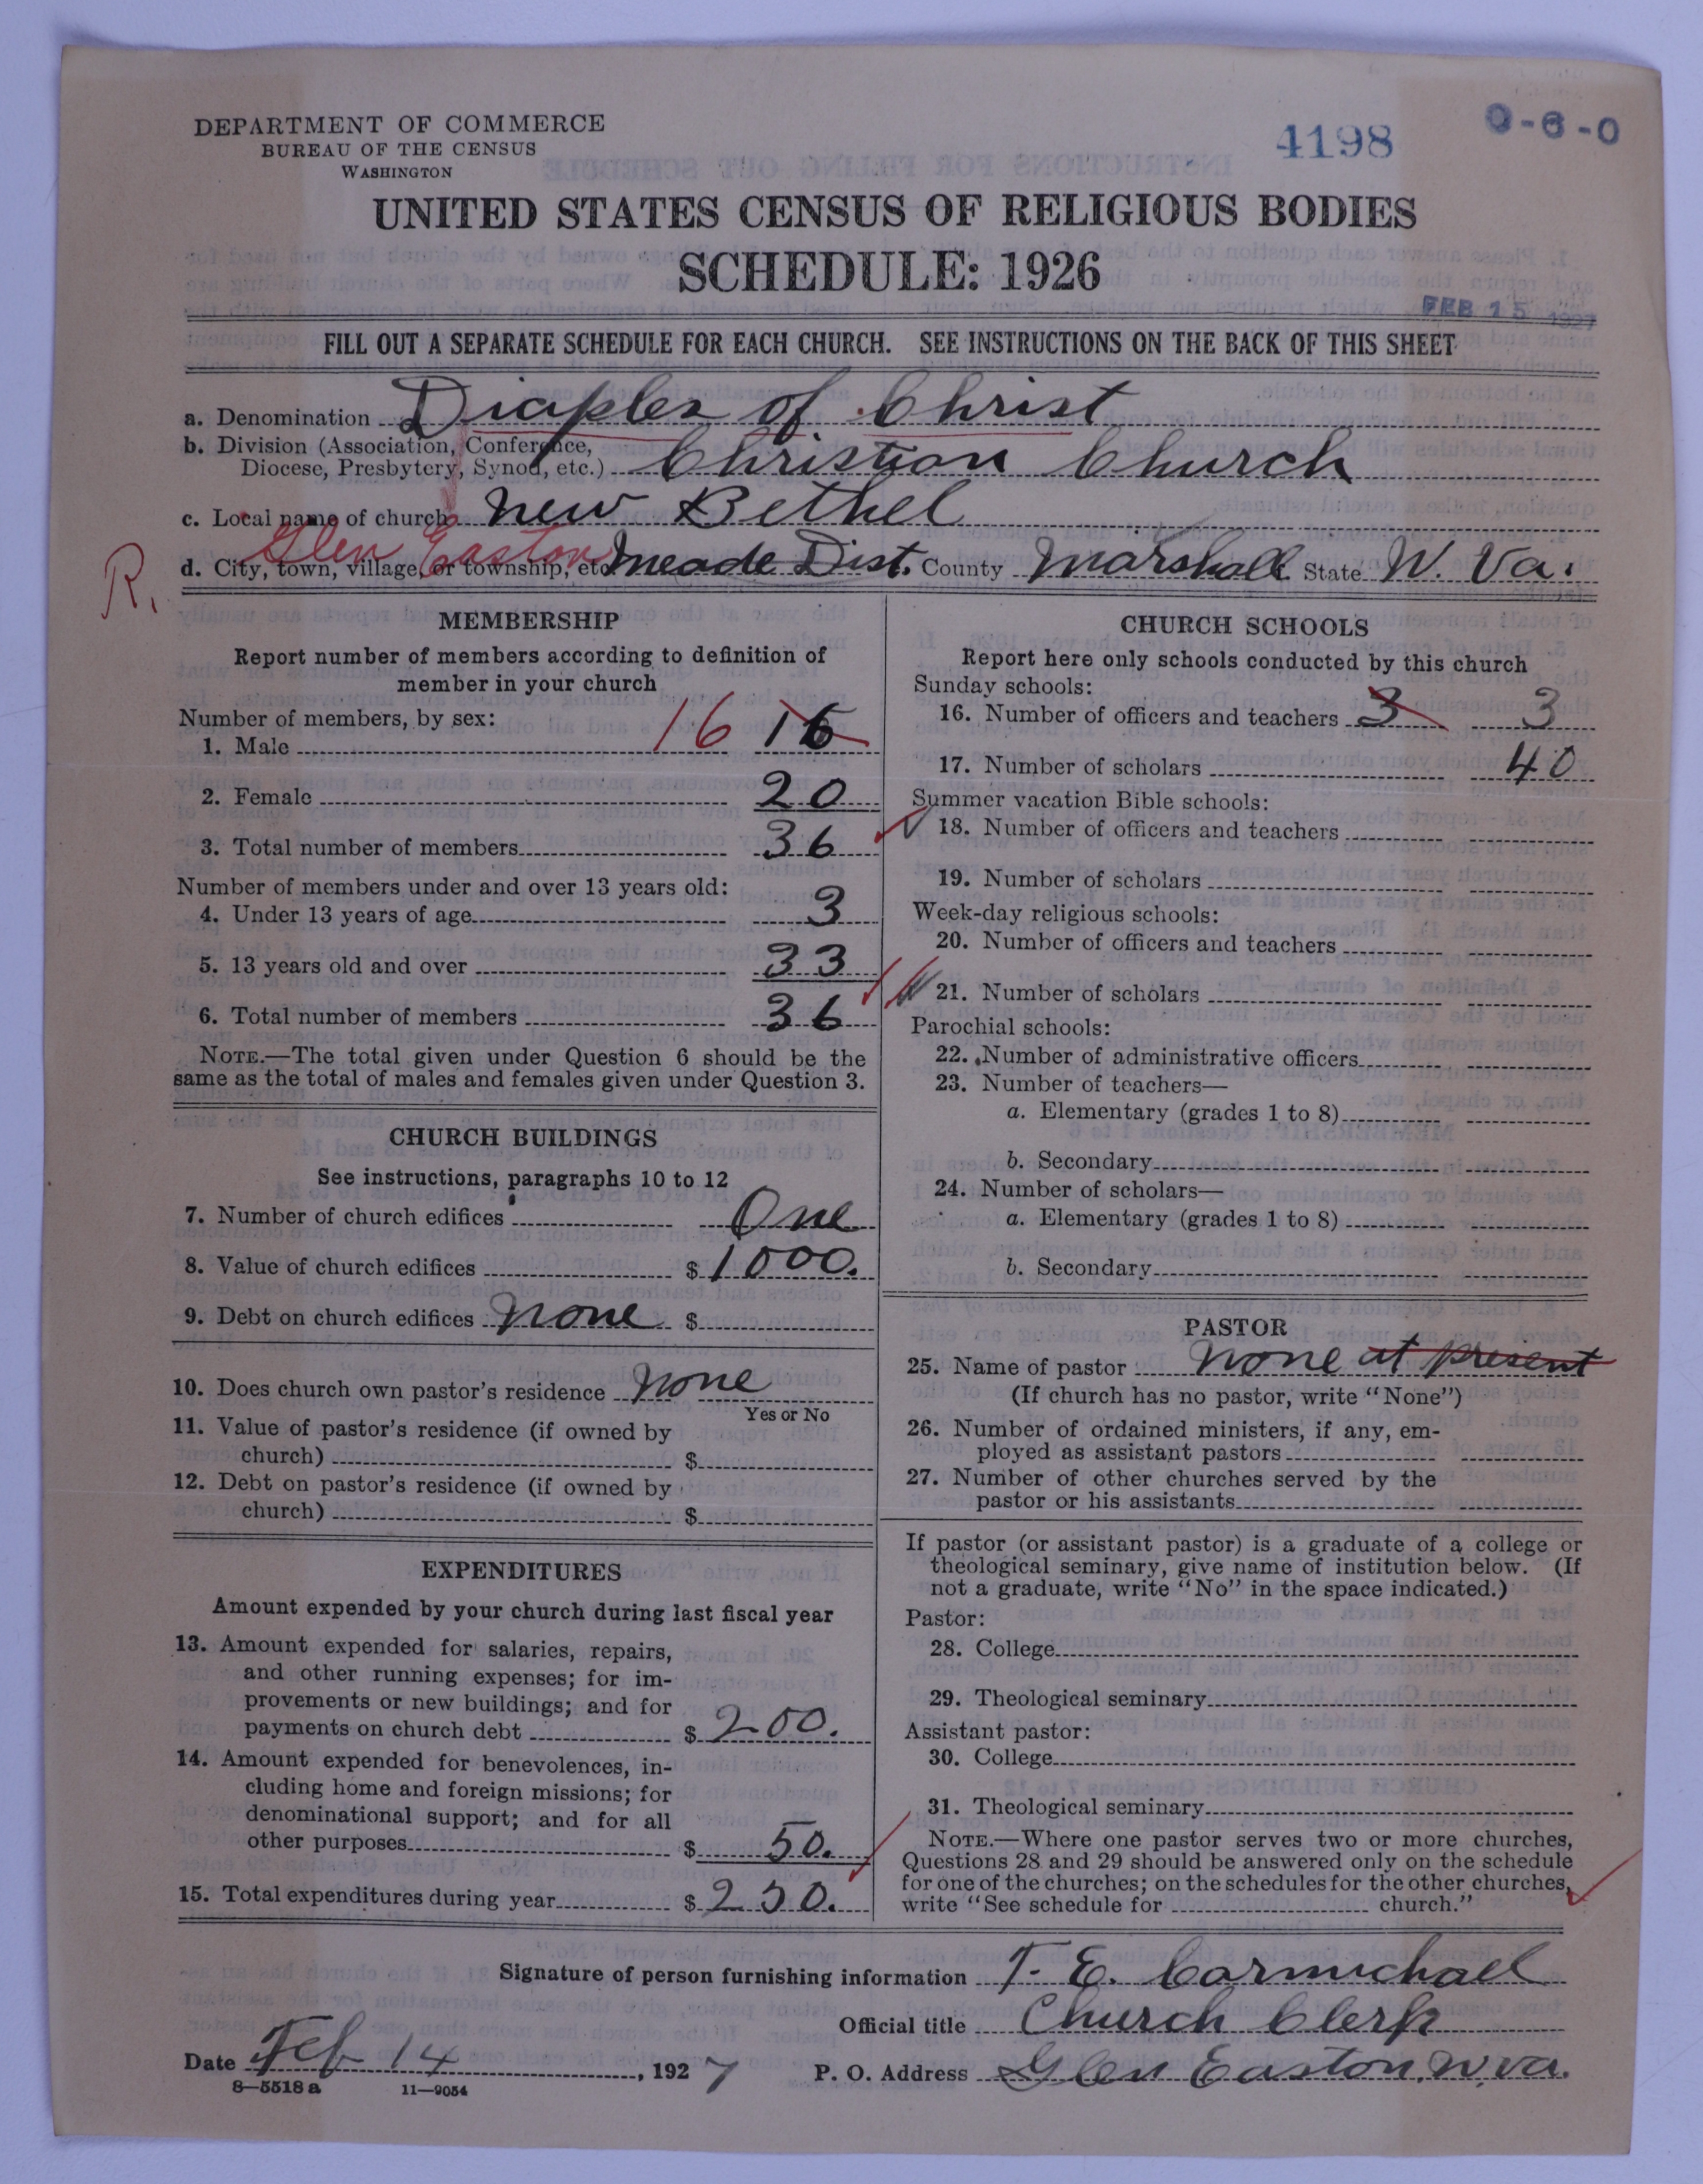 DEPARTMENT OF COMMERCE
BUREAU OF THE CENSUS
WASHINGTON
4198
0-6-0
UNITED STATES CENSUS OF RELIGIOUS BODIES
SCHEDULE: 1926
FEB 15 1927
FILL OUT A SEPARATE SCHEDULE FOR EACH CHURCH. SEE INSTRUCTIONS ON THE BACK OF THIS SHEET
a. Denomination Diciples of Christ
b. Division (Association, Conference,
Diocese, Presbytery, Synod, etc.) Christian Church
c. Local name of church New Bethel
Glen Easton
R. d. City, town, village, or township, etc Meade Dist. County Marshall State W. Va.
MEMBERSHIP
Report number of members according to definition of
member in your church
Number of members, by sex:
1. Male 16 16
2. Female 20
3. Total number of members 36
Number of members under and over 13 years old:
4. Under 13 years of age 3
5. 13 years old and over 33
6. Total number of members 36
NOTE.—The total given under Question 6 should be the
same as the total of males and females given under Question 3.
CHURCH BUILDINGS
See instructions, paragraphs 10 to 12
7. Number of church edifices One
8. Value of church edifices $ 1000.
9. Debt on church edifices none $
10. Does church own pastor's residence none
Yes or No
11. Value of pastor's residence (if owned by
church) $
12. Debt on pastor's residence (if owned by
church) $
EXPENDITURES
Amount expended by your church during last fiscal year
13. Amount expended for salaries, repairs,
and other running expenses; for im-
provements or new buildings; and for
payments on church debt $ 200.
14. Amount expended for benevolences, in-
cluding home and foreign missions; for
denominational support; and for all
other purposes $ 50.
15. Total expenditures during year $ 250.
CHURCH SCHOOLS
Report here only schools conducted by this church
Sunday schools:
16. Number of officers and teachers 3 3
17. Number of scholars 40
Summer vacation Bible schools:
18. Number of officers and teachers
19. Number of scholars
Week-day religious schools:
20. Number of officers and teachers
21. Number of scholars
Parochial schools:
22. Number of administrative officers
23. Number of teachers—
a. Elementary (grades 1 to 8)
b. Secondary
24. Number of scholars—
a. Elementary (grades 1 to 8)
b. Secondary
PASTOR
25. Name of pastor none at present
(If church has no pastor, write "None")
26. Number of ordained ministers, if any, em-
ployed as assistant pastors
27. Number of other churches served by the
pastor or his assistants
If pastor (or assistant pastor) is a graduate of a college or
theological seminary, give name of institution below. (If
not a graduate, write "No" in the space indicated.)
Pastor:
28. College
29. Theological seminary
Assistant pastor:
30. College
31. Theological seminary
NOTE.—Where one pastor serves two or more churches,
Questions 28 and 29 should be answered only on the schedule
for one of the churches; on the schedules for the other churches,
write "See schedule for church."
Signature of person furnishing information T. E. Carmichael
Official title Church Clerk
Date Feb 14, 1927 P. O. Address Glen Easton, W. Va.
8—5518a 11—9054